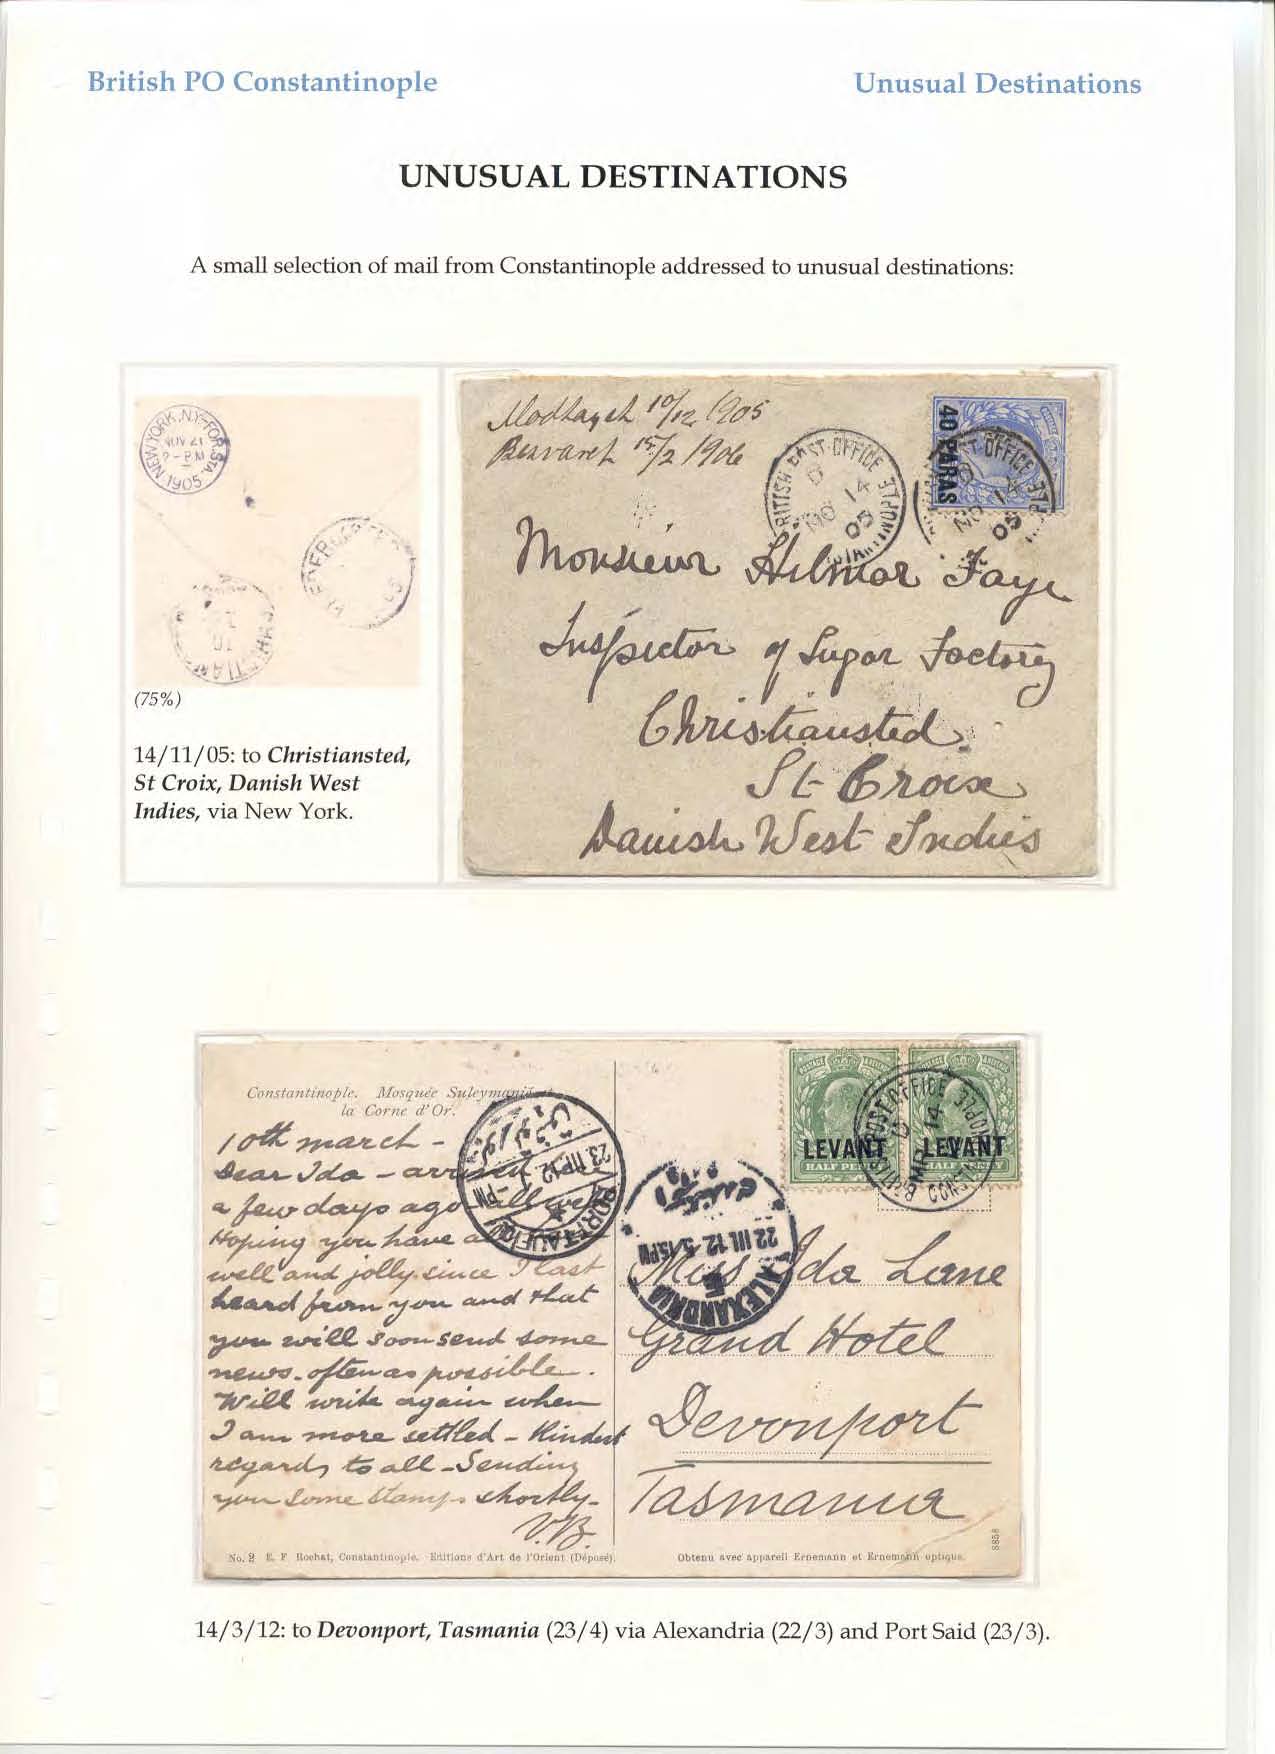 British PO Constantinople
Unusual Destinations
UNUSUAL DESTINATIONS
A small selection of mail from Constantinople addressed to unusual destinations:
NEW YORK, N.Y.-FOR. STA.
NOV 21
9-PM
1905
(75%)
14/11/05: to Christiansted,
St Croix, Danish West
Indies, via New York.
Modtaget 10/12 1905
Besvaret 15/2 1906
40 PARAS
BRITISH POST OFFICE
D
NO 14
05
POST OFFICE
NO 14
05
Monsieur Hilmar Faye
Inspector of Sugar Factory
Christiansted
St Croix
Danish West Indies
Constantinople. Mosquée Suleymanié et
la Corne d'Or.
10th march -
Dear Ida - arrived
a few days ago all well
Hoping you have a
well and jolly since I last
heard from you and that
you will soon send some
news. often as possible.
Will write again when
I am more settled - Kindest
regards to all - Sending
you some stamps shortly -
V.B.
No. 2 E. F. Rochat, Constantinople. Editions d'Art de l'Orient (Déposé).
23. III 12. 1 -PM
PORT-TAUFIQ
22 III 12. 5.15 PM
ALEXANDRIA
LEVANT
HALF PENNY
LEVANT
HALF PENNY
BRITISH POST OFFICE
D
MR 14
Miss Ida Lane
Grand Hotel
Devonport
Tasmania
Obtenu avec appareil Ernemann et Ernemann optique.
8858
14/3/12: to Devonport, Tasmania (23/4) via Alexandria (22/3) and Port Said (23/3).